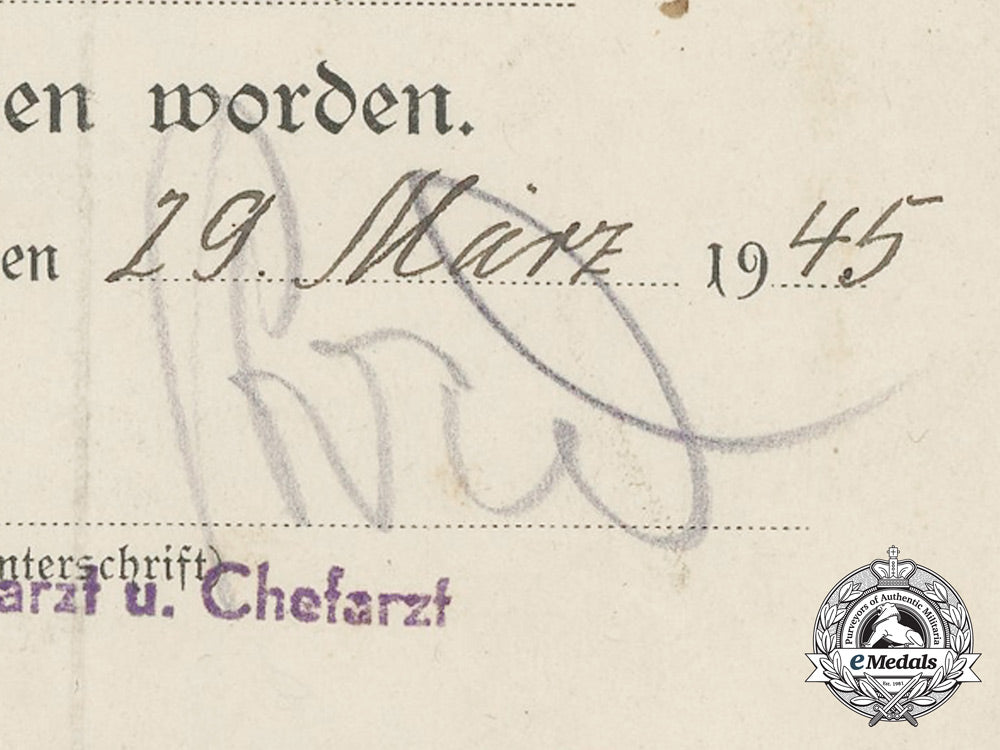 en worden.
en 29. März 1945
nterschrift)
arzt u. Chefarzt
Purveyors of Authentic Militaria
eMedals
Est. 1981